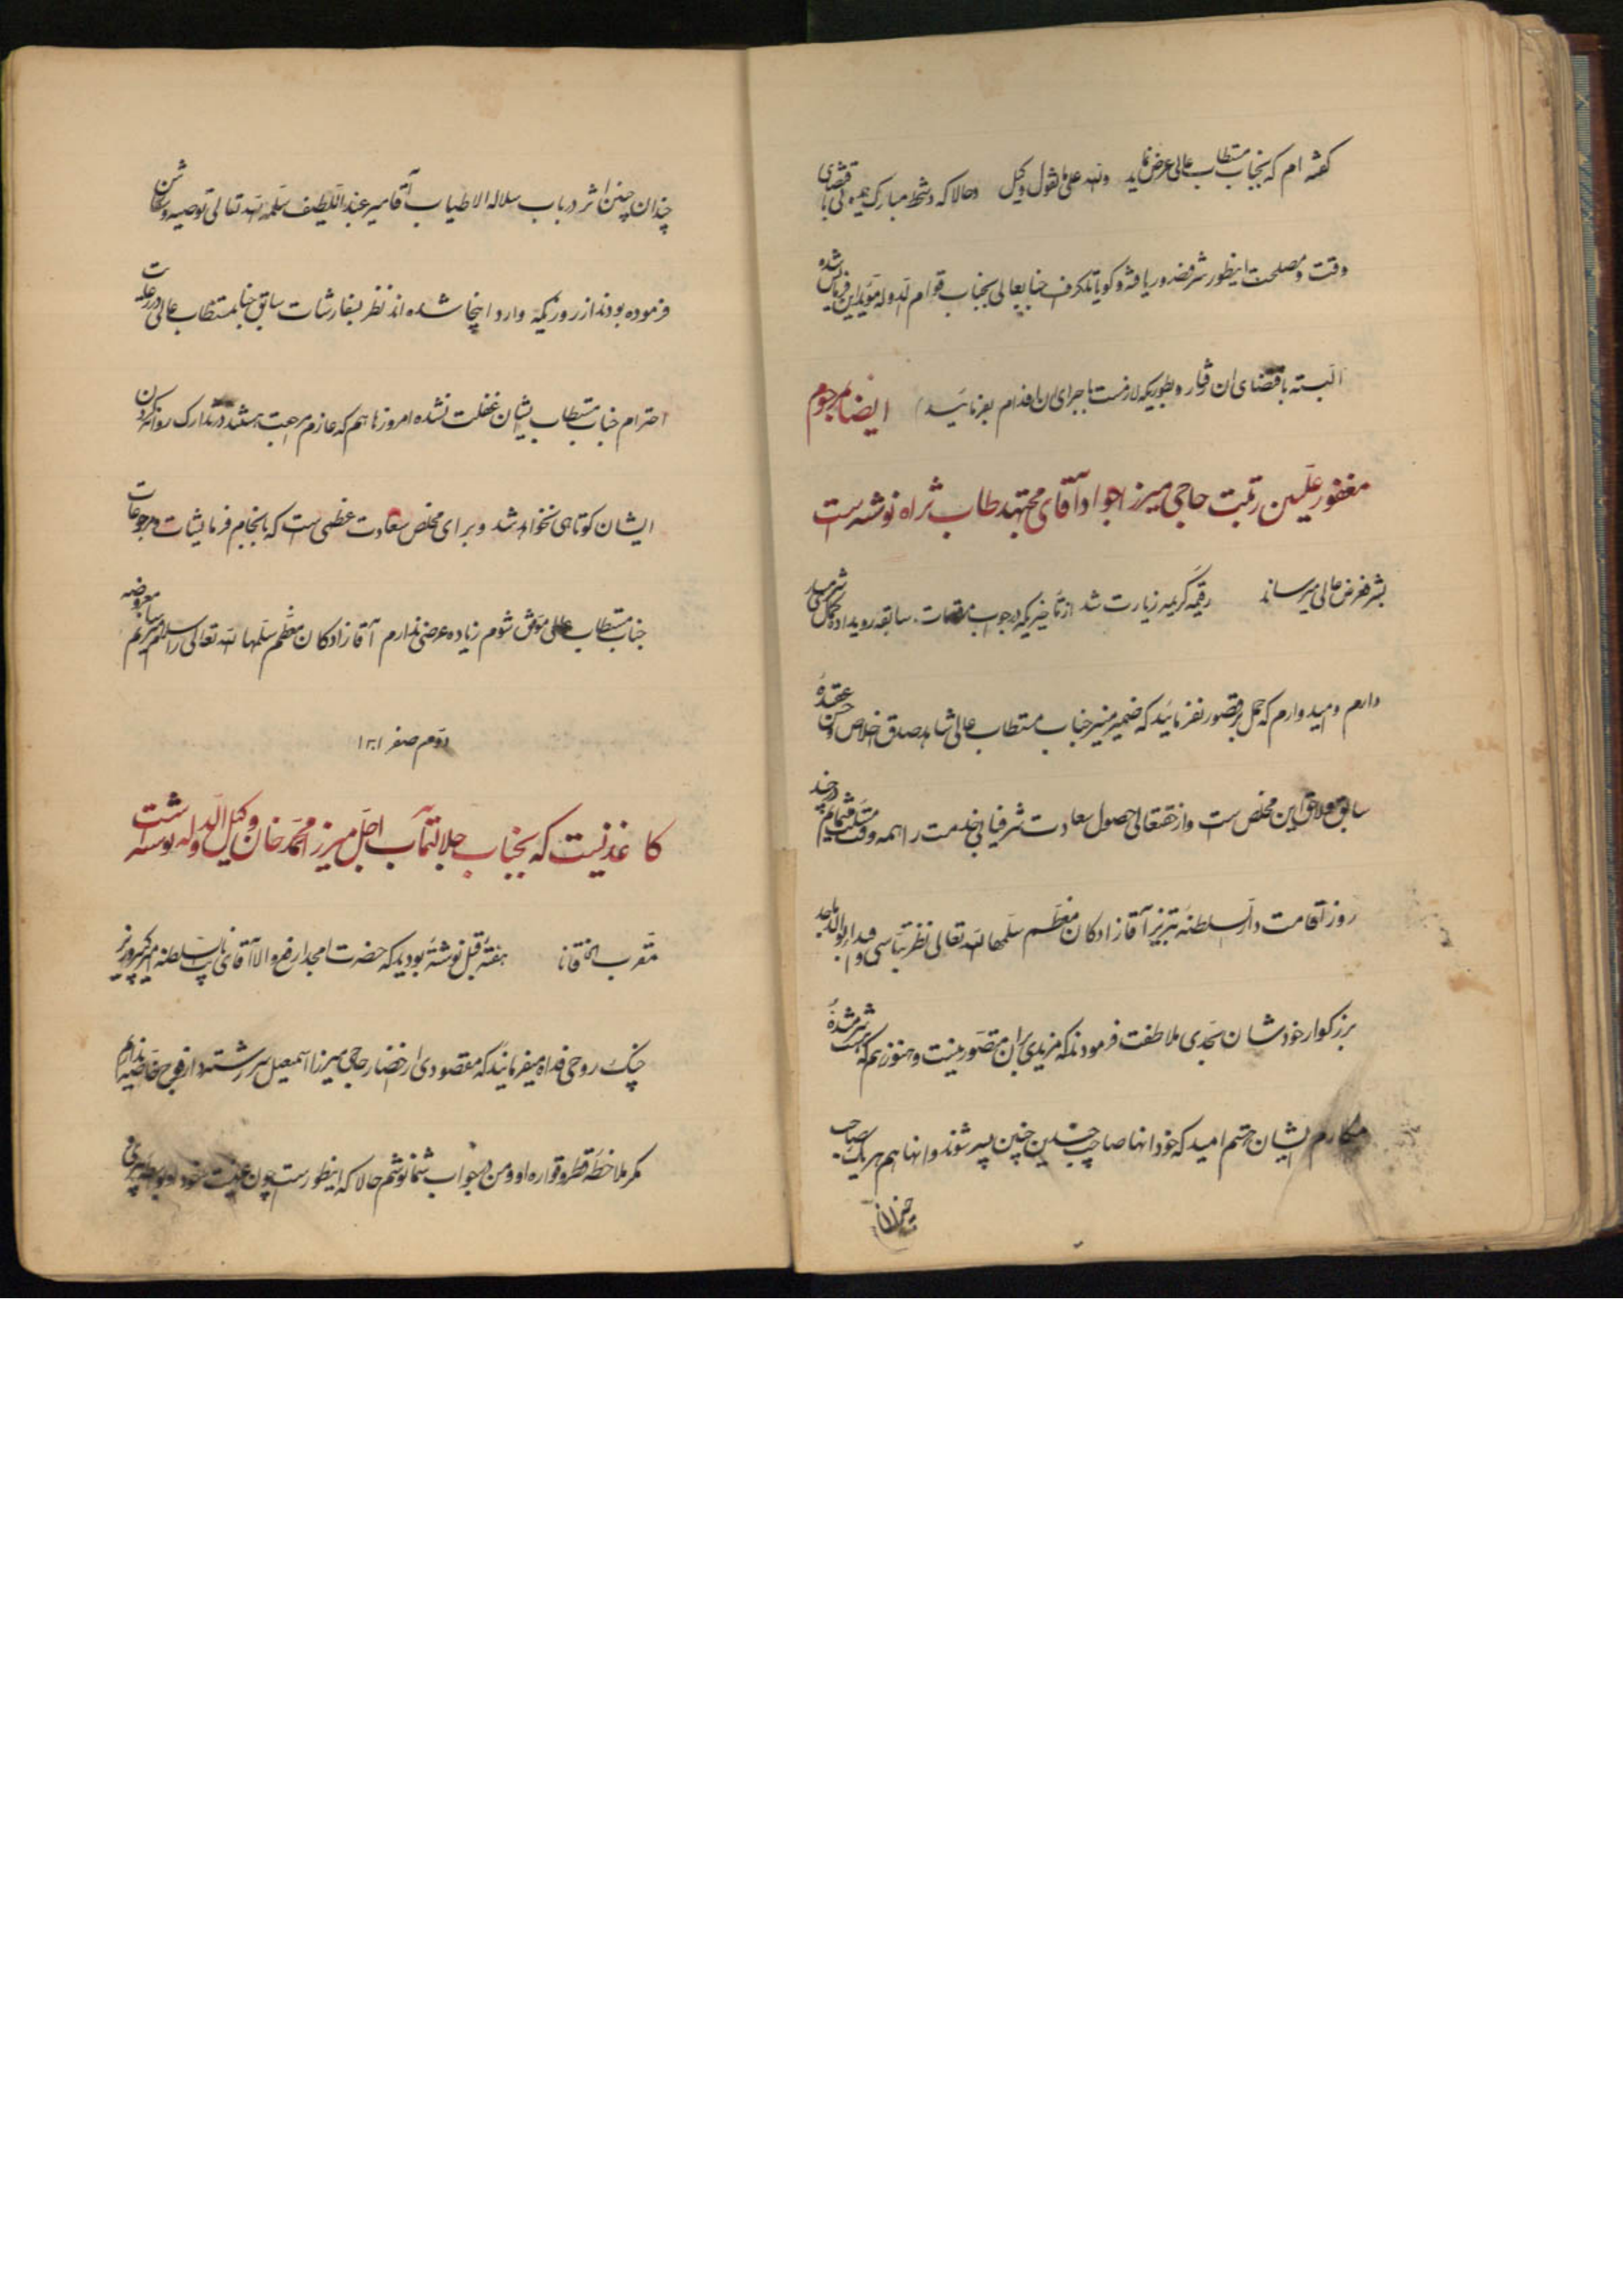 گفته ام که بجناب مستطاب عالی عرض نماید والله علی ما نقول وکیل و حالا که دستخط مبارک باقتضای
وقت و مصلحت اینطور شرفصدور یافته و گویا تلگراف جنابعالی بجناب قوام الدوله مؤید این فرمایش شده
البته باقتضای ان قرار و بطوریکه لازمست باجرای ان اقدام بفرمائید ایضا بمرحوم
مغفور علیین رتبت حاجی میرزا جواد آقای مجتهد طاب ثراه نوشته است
بشرفعرض عالی میرساند رقیمه کریمه زیارت شد از تأخیریکه در جواب مرقعات سابقه رویداده کمال شرمساری
دارم و امیدوارم که حمل بر قصور نفرمائید که ضمیر منیر جناب مستطاب عالی شاهد صدق اخلاص و حسن عقیده
سابق و لاحق این مخلص است و از حقتعالی حصول سعادت شرفیابی خدمت را همه وقت مسئلت مینمایم در چند
روز اقامت دارالسلطنه تبریز آقازادگان معظم سلمهما الله تعالی نظر بتاسی و اقتدا بوالد ماجد
بزرگوار خودشان بحدی ملاطفت فرمودند که مزیدی بران متصور نیست و هنوز هم که هست شرمنده
مکارم ایشان هستم امید که خود انها صاحب چندین چنین پسر شوند و انها هم هر یک صاحب
چندان
چندان چنین اثر در باب سلاله الاطیاب آقا میر عبداللطیف سلمه الله تعالی توصیه و سفارش
فرموده بودند از روزیکه وارد اینجا شده اند نظر بسفارشات سابق جناب مستطاب عالی در رعایت
احترام جناب مستطاب ایشان غفلت نشده امروزها هم که عازم مراجعت هستند در تدارک روانه کردن
ایشان کوتاهی نخواهد شد و برای مخلص سعادت عظمی است که بانجام فرمایشات و مرجوعات
جناب مستطاب عالی موفق شوم زیاده عرضی ندارم آقازادگان معظم سلمهما الله تعالی را سلام میرسانم معروضه
دویم صفر ۱۳۰۱
کاغذیست که بجناب جلالتمآب اجل میرزا محمد خان وکیل الدوله نوشته است
مقرب الخاقانا هفته قبل نوشته بودید که حضرت امجد ارفع والا آقای نایب السلطنه امیرکبیر وزیر
جنگ روحی فداه میفرمایند که مقصودی از احضار حاجی میرزا اسمعیل سررشته دار فوج خاصه ندارم
مگر ملاحظه قطر و قواره او و من در جواب شما نوشتم حالا که اینطور است چون عیب خود او بواسطه پیری و